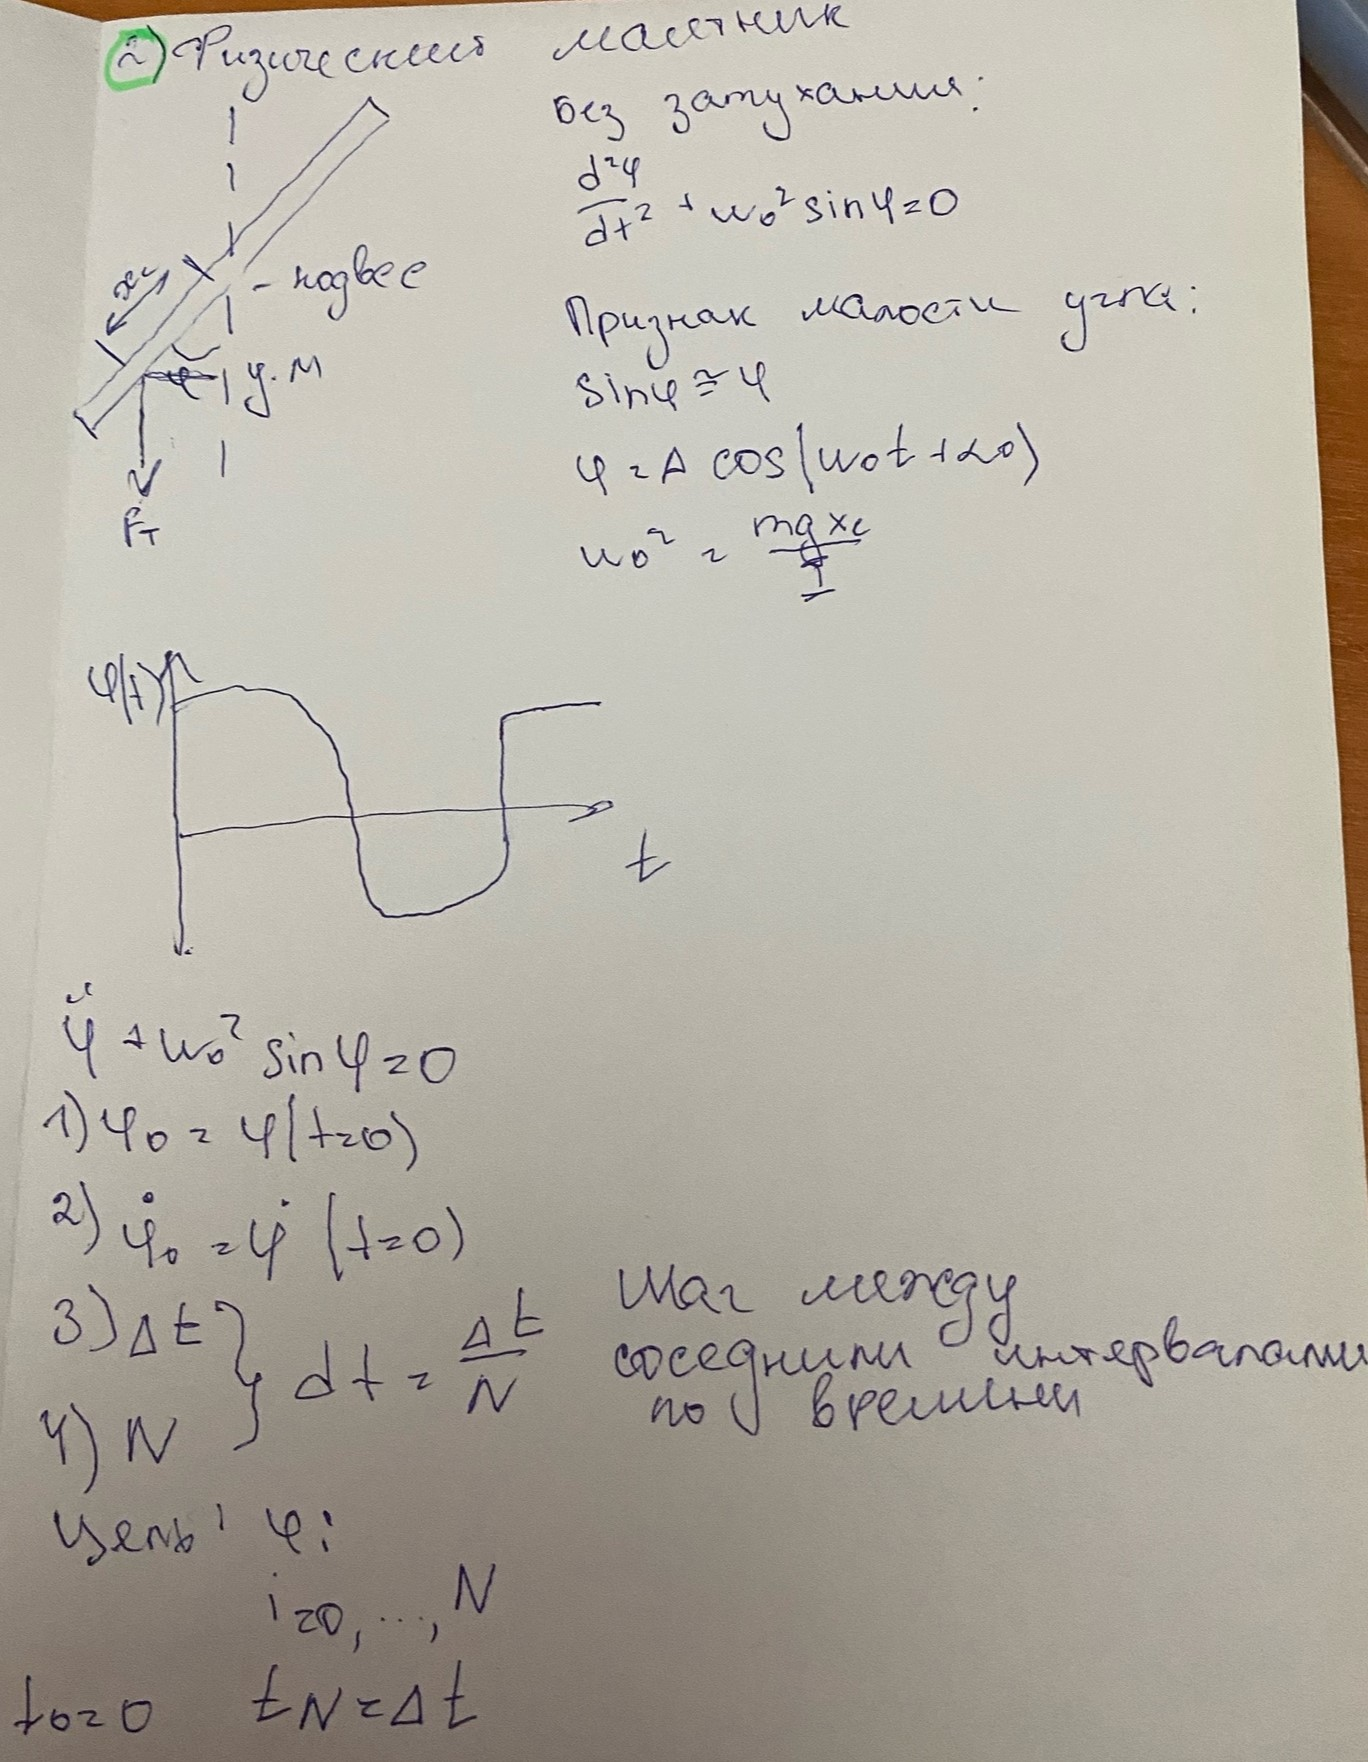 2) Физический маятник
Без затухания:
d²φ
dt² + ω₀² sinφ=0
xc
- подвес
φ
ц.м
Fт
Признак малости угла:
sinφ ≅ φ
φ = A cos(ω₀t + α₀)
ω₀² = mgxc
I
φ(t)
t
φ̈ + ω₀² sinφ=0
1) φ₀ = φ(t=0)
2) φ̇₀ = φ̇ (t=0)
3) Δt
4) N
} dt = Δt
N
Шаг между
соседними интервалами
по времени
Цель: φi
i=0, ..., N
t₀=0 tN=Δt